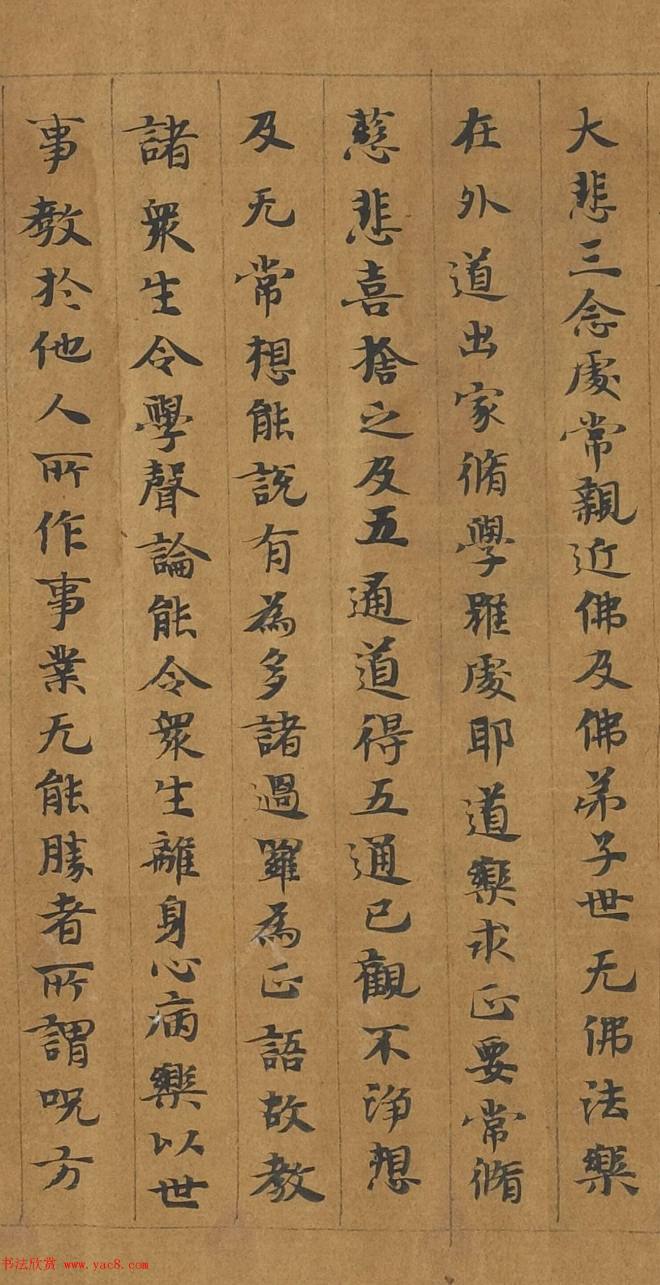 大悲三念處常親近佛及佛弟子世无佛法樂
在外道出家脩學雖處耶道樂求正要常脩
慈悲喜捨之及五通道得五通已觀不淨想
及无常想能說有為多諸過䍦為正語故教
諸衆生令學聲論能令衆生離身心病樂以世
事教於他人所作事業无能勝者所謂呪方
书法欣赏 www.yac8.com